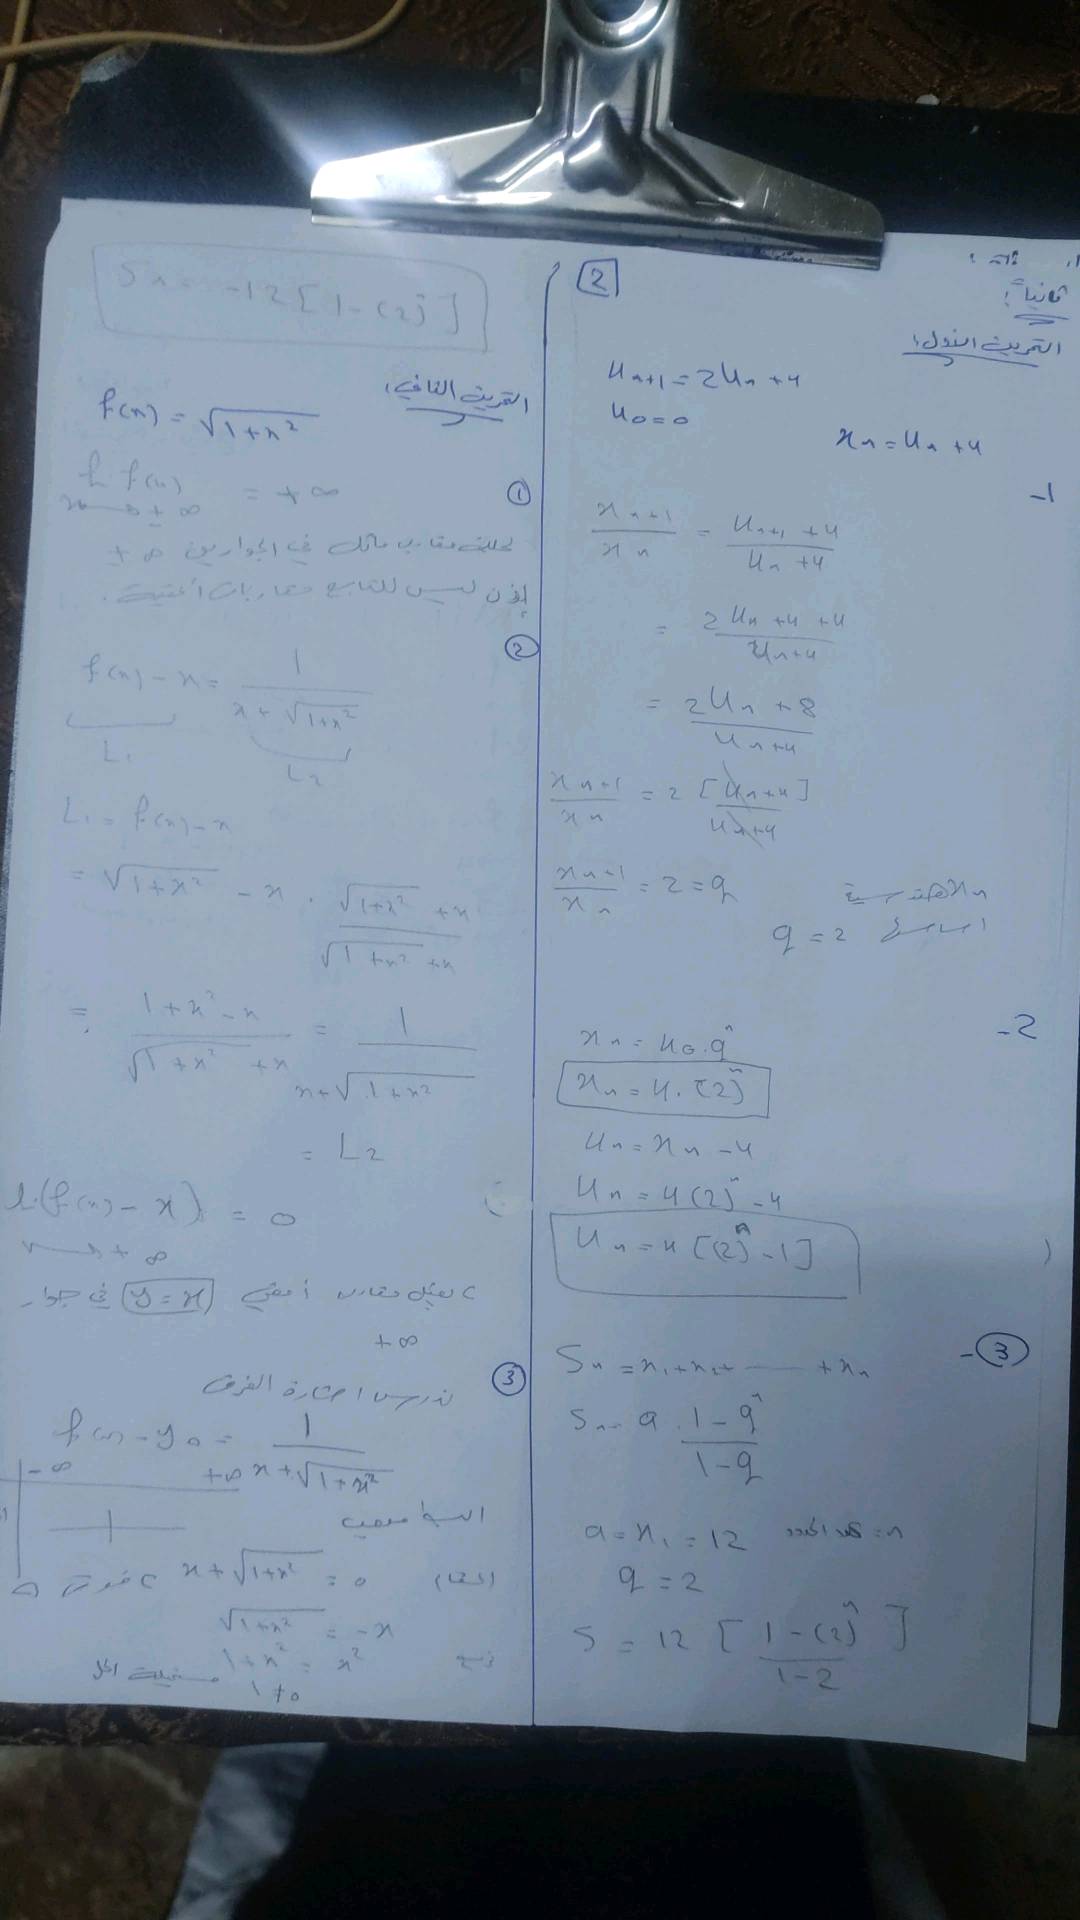 2
ثانياً:
التمرين الأول:
u_{n+1} = 2u_n + 4
u_0 = 0
x_n = u_n + 4
-1
\frac{x_{n+1}}{x_n} = \frac{u_{n+1} + 4}{u_n + 4}
= \frac{2u_n + 4 + 4}{u_n + 4}
= \frac{2u_n + 8}{u_n + 4}
\frac{x_{n+1}}{x_n} = 2 \frac{[u_n + 4]}{u_n + 4}
\frac{x_{n+1}}{x_n} = 2 = q
x_n هندسية
q = 2 أساسها
-2
x_n = u_0 . q^n
x_n = 4 . (2)^n
u_n = x_n - 4
u_n = 4(2)^n - 4
u_n = 4[(2)^n - 1]
-3
S_n = x_1 + x_2 + ------ + x_n
S_n = a . \frac{1 - q^n}{1 - q}
a = x_1 = 12 n = عدد الحدود
q = 2
S = 12 [\frac{1 - (2)^n}{1 - 2}]
S_n = -12 [1 - (2)^n]
التمرين الثاني:
f(x) = \sqrt{1 + x^2}
①
f(x) = +∞
x → ±∞
مقارب مائل في الجوارين ±∞
إذن ليس للتابع مقاربات أفقية.
②
f(x) - x = \frac{1}{x + \sqrt{1 + x^2}}
L_1
L_2
L_1 = f(x) - x
= \sqrt{1 + x^2} - x . \frac{\sqrt{1 + x^2} + x}{\sqrt{1 + x^2} + x}
= \frac{1 + x^2 - x}{\sqrt{1 + x^2} + x} = \frac{1}{x + \sqrt{1 + x^2}}
= L_2
(f(x) - x) = 0
+∞
مقارب أفقي y = x في جوار
+∞
③
ندرس إشارة الفرق
f(x) - y_Δ = \frac{1}{x + \sqrt{1 + x^2}}
-∞ +∞
البسط موجب
المقام x + \sqrt{1 + x^2} = 0
\sqrt{1 + x^2} = -x
نربع 1 + x^2 = x^2
1 ≠ 0 مستحيلة الحل
C فوق Δ